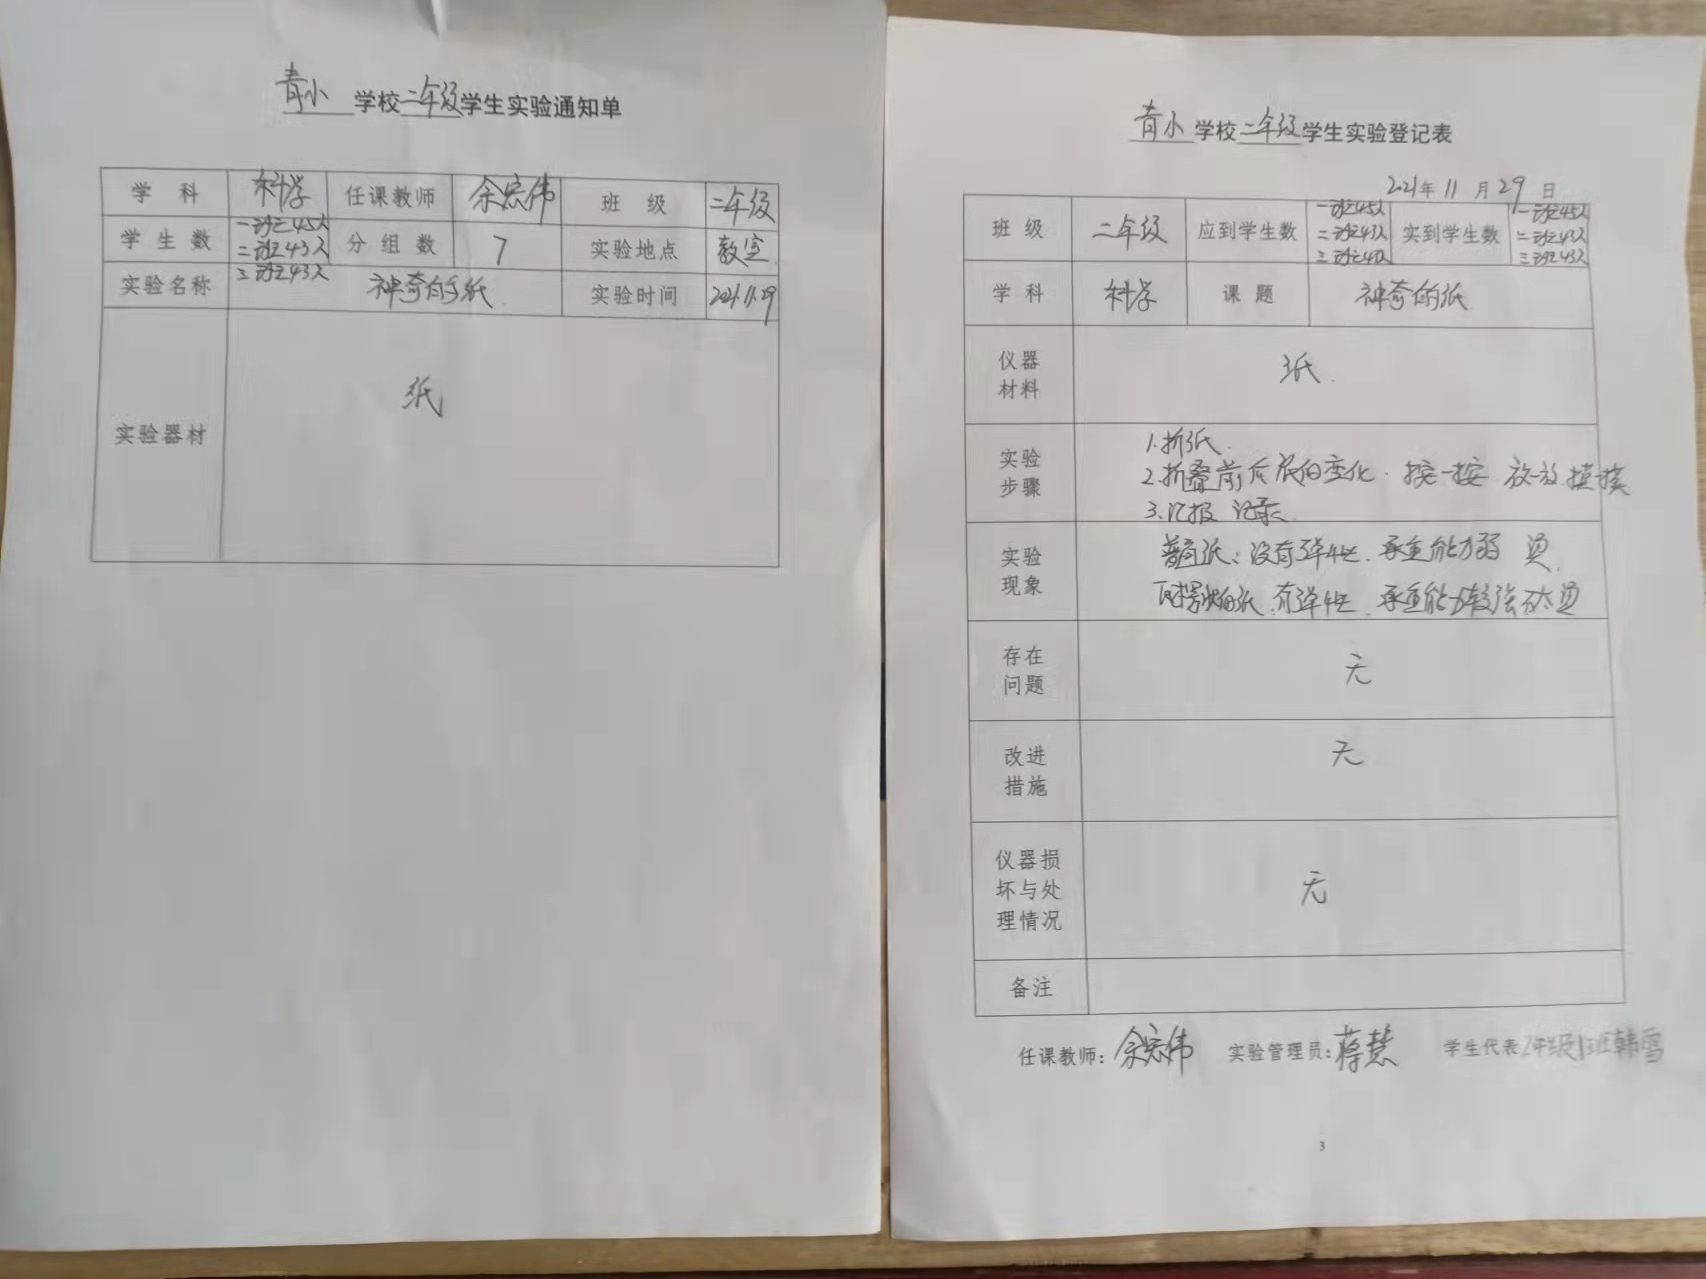 青小 学校二年级学生实验通知单
学科 科学 任课教师 余宏伟 班级 二年级
学生数 一班45人 二班43人 三班43人 分组数 7 实验地点 教室
实验名称 神奇的纸 实验时间 2021.11.29
实验器材 纸
青小 学校二年级学生实验登记表
2021年 11 月 29 日
班级 二年级 应到学生数 一班45人 二班43人 三班 实到学生数 一班45人 二班43人 三班43人
学科 科学 课题 神奇的纸
仪器材料 纸.
实验步骤 1.折纸.
2.折叠前后 的变化. 按一按 放一放 摸摸
3.汇报 记录.
实验现象 普通纸:没有弹性.承重能力弱 烫.
的纸.有弹性.承重能力较强 不太烫
存在问题 无
改进措施 无
仪器损坏与处理情况 无
备注
任课教师:余宏伟 实验管理员:蒋慧 学生代表2年级1班韩雪
3